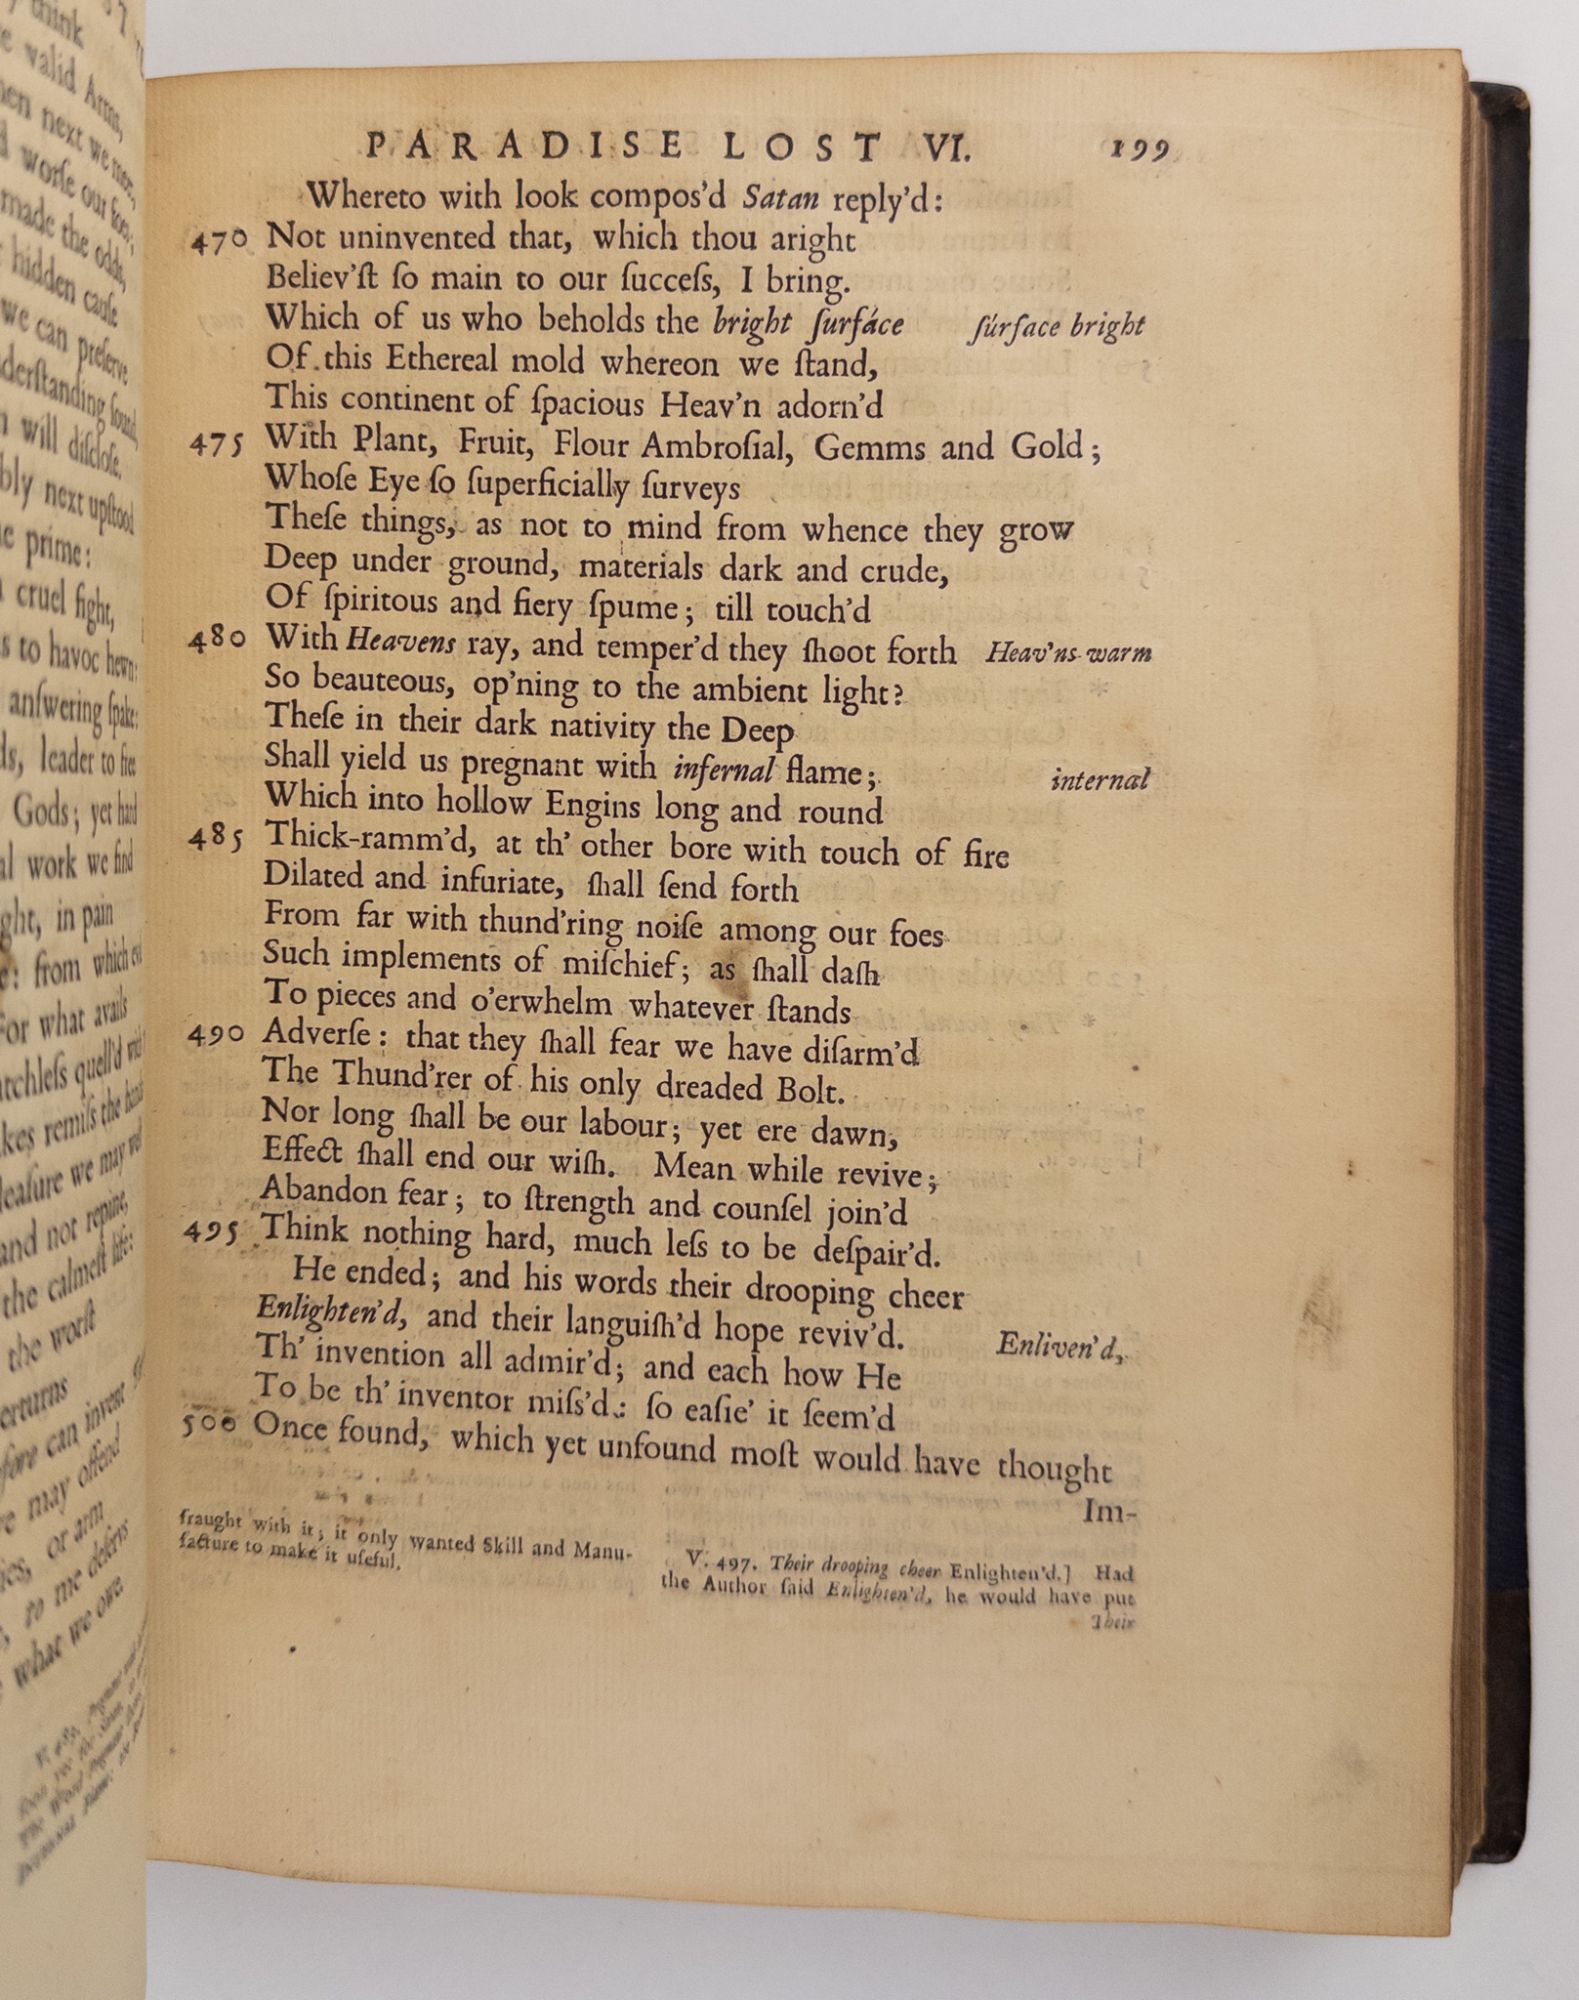 think
valid Arms,
next we meet,
worſe our foes,
made the odds,
hidden cauſe
we can preſerve
will diſcloſe.
next upſtood
prime:
cruel fight,
to havoc hewn:
anſwering ſpake:
leader to free
Gods; yet hard
work we find
in pain
from which
For what avails
quell'd
remiſs the
we may
and not repine,
the calmeſt life:
the worſt
can invent
may offend
or arm
to me deſerves
what we owe
PARADISE LOST VI. 199
Whereto with look compos'd Satan reply'd:
470 Not uninvented that, which thou aright
Believ'ſt ſo main to our ſucceſs, I bring.
Which of us who beholds the bright ſurfáce ſúrface bright
Of this Ethereal mold whereon we ſtand,
This continent of ſpacious Heav'n adorn'd
475 With Plant, Fruit, Flour Ambroſial, Gemms and Gold;
Whoſe Eye ſo ſuperficially ſurveys
Theſe things, as not to mind from whence they grow
Deep under ground, materials dark and crude,
Of ſpiritous and fiery ſpume; till touch'd
480 With Heavens ray, and temper'd they ſhoot forth Heav'ns warm
So beauteous, op'ning to the ambient light?
Theſe in their dark nativity the Deep
Shall yield us pregnant with infernal flame; internal
Which into hollow Engins long and round
485 Thick-ramm'd, at th' other bore with touch of fire
Dilated and infuriate, ſhall ſend forth
From far with thund'ring noiſe among our foes
Such implements of miſchief; as ſhall daſh
To pieces and o'erwhelm whatever ſtands
490 Adverſe: that they ſhall fear we have diſarm'd
The Thund'rer of his only dreaded Bolt.
Nor long ſhall be our labour; yet ere dawn,
Effect ſhall end our wiſh. Mean while revive;
Abandon fear; to ſtrength and counſel join'd
495 Think nothing hard, much leſs to be deſpair'd.
He ended; and his words their drooping cheer
Enlighten'd, and their languiſh'd hope reviv'd. Enliven'd,
Th' invention all admir'd; and each how He
To be th' inventor miſs'd: ſo eaſie' it ſeem'd
500 Once found, which yet unfound moſt would have thought
Im-
fraught with it; it only wanted Skill and Manu-
facture to make it uſeful.
V. 497. Their drooping cheer Enlighten'd.] Had
the Author ſaid Enlighten'd, he would have put
Their